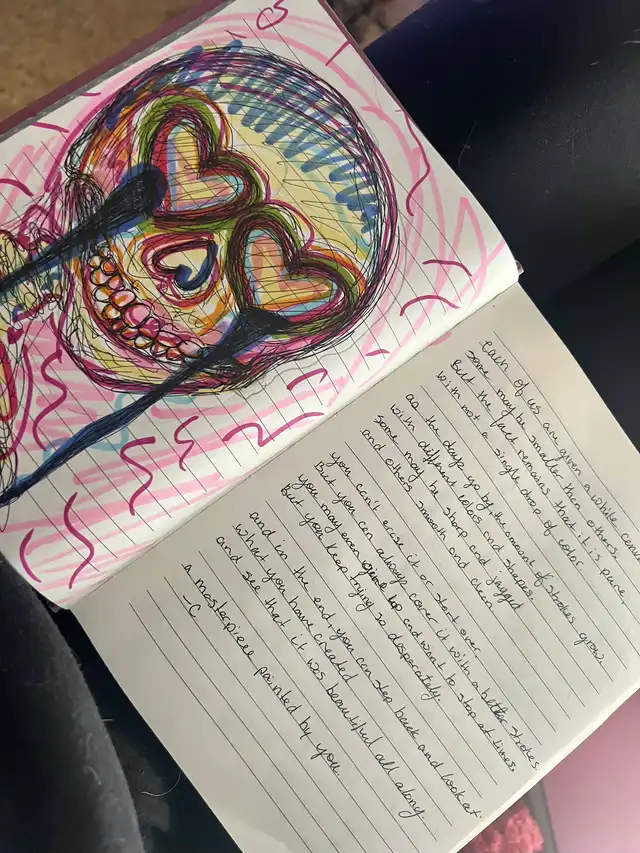 each of us are given a white can
some may be smaller than others.
But the fact remains that it is pure,
with not a single drop of color.
as the days go by, the amount of strokes grow
with different colors and shapes.
some may be sharp and jagged
and others smooth and clean
you can't erase it or start over.
But you can always cover it with a better strokes
you may even give up and want to stop at times.
But you keep trying so desperately.
and in the end, you can step back and look at
what you have created
and see that it was beautiful all along
a masterpiece painted by you
-C